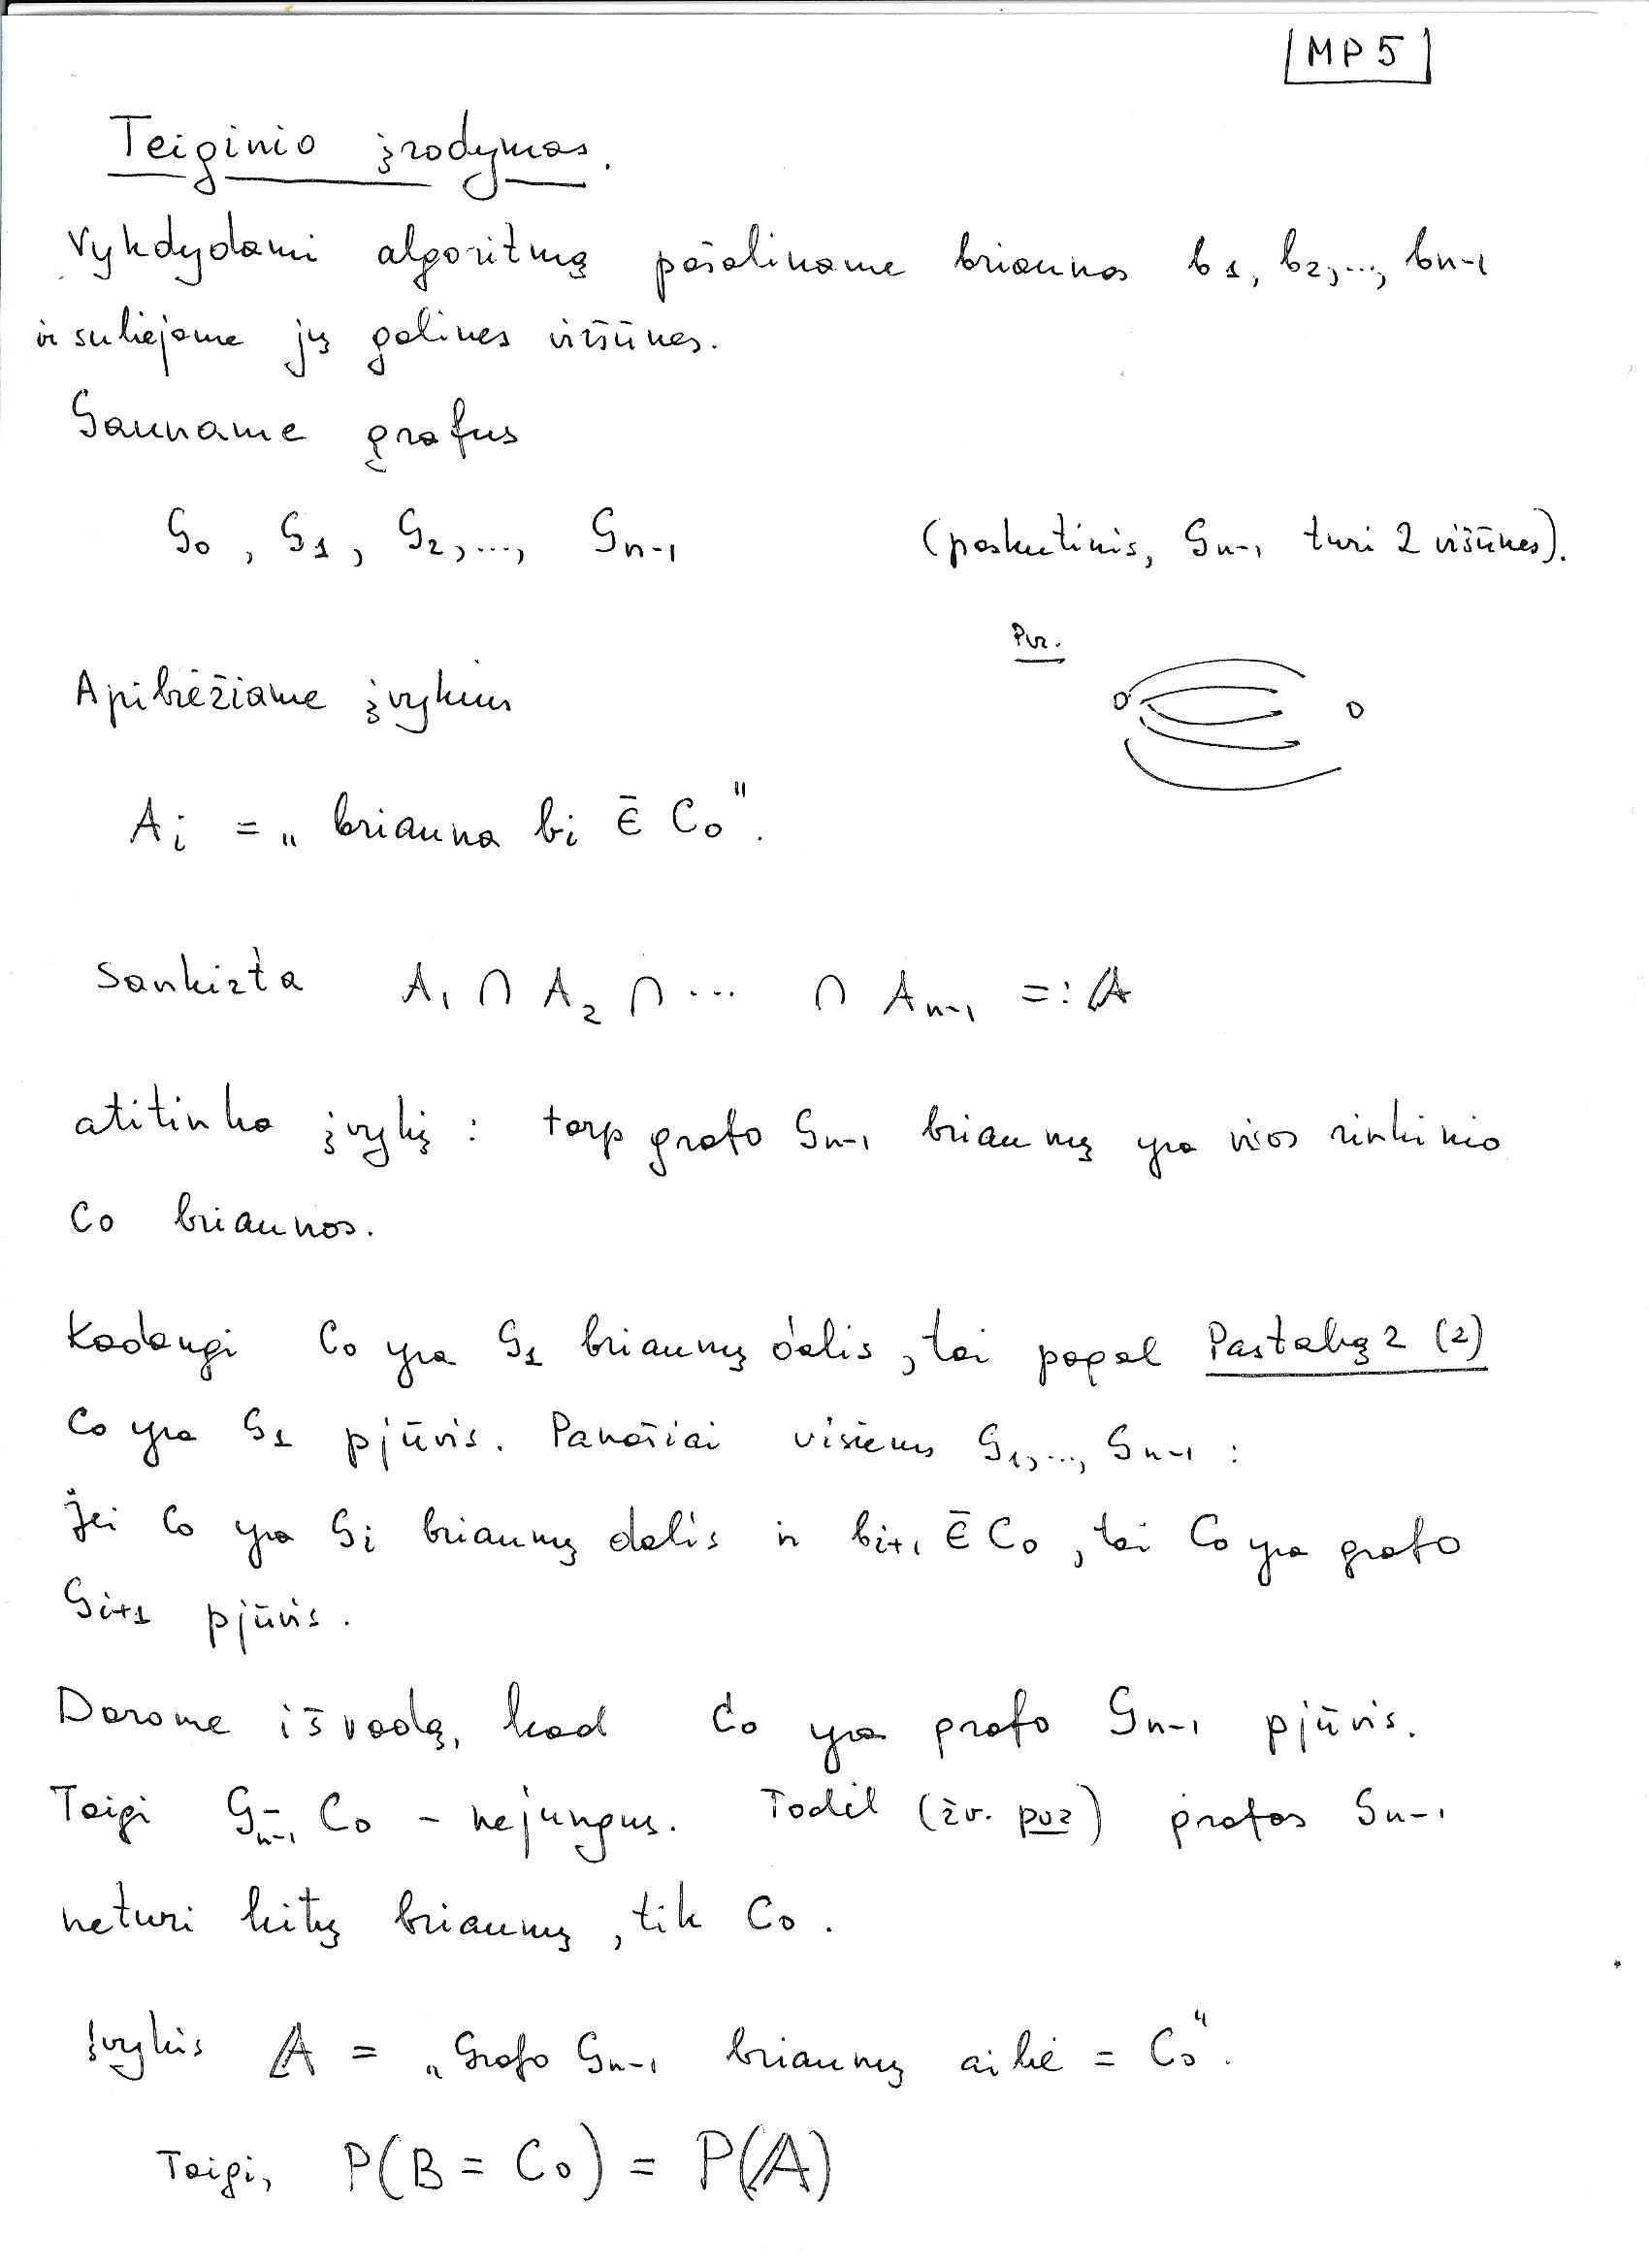 [MP 5]
Teiginio įrodymas.
Vykdydami algoritmą pašaliname briaunas b1, b2,..., bn-1
ir suliejame jų galines viršūnes.
Gauname grafus
G0, G1, G2,..., Gn-1 (paskutinis, Gn-1 turi 2 višūnes).
Pvz.
Apibrėžiame įvykius
Ai = „ briauna bi ∈̄ C0".
Sankirta A1 ∩ A2 ∩ ... ∩ An-1 =: 𝔸
atitinka įvykį : tarp grafo Gn-1 briaunų yra visos rinkinio
C0 briaunos.
Kadangi C0 yra G1 briaunų dalis, tai pagal Pastabą 2 (2)
C0 yra G1 pjūvis. Panašiai visiems G1,..., Gn-1 :
Jei C0 yra Gi briaunų dalis ir bi+1 ∈̄ C0, tai C0 yra grafo
Gi+1 pjūvis.
Darome išvadą, kad C0 yra grafo Gn-1 pjūvis.
Taigi Gn-1 - C0 – nejungus. Todėl (žr. pvz) grafas Gn-1
neturi kitų briaunų, tik C0.
Įvykis 𝔸 = „Grafo Gn-1 briaunų aibė = C0".
Taigi, P(B = C0) = P(𝔸)